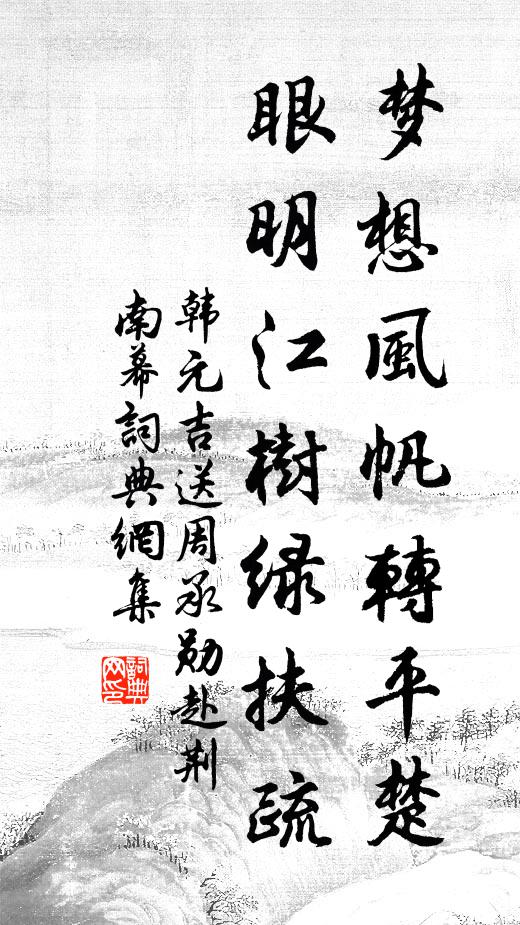 梦想風帆轉平楚
眼明江樹緑扶疏
韩元吉送周承勋赴荆
南幕詞典網集
詞典网印